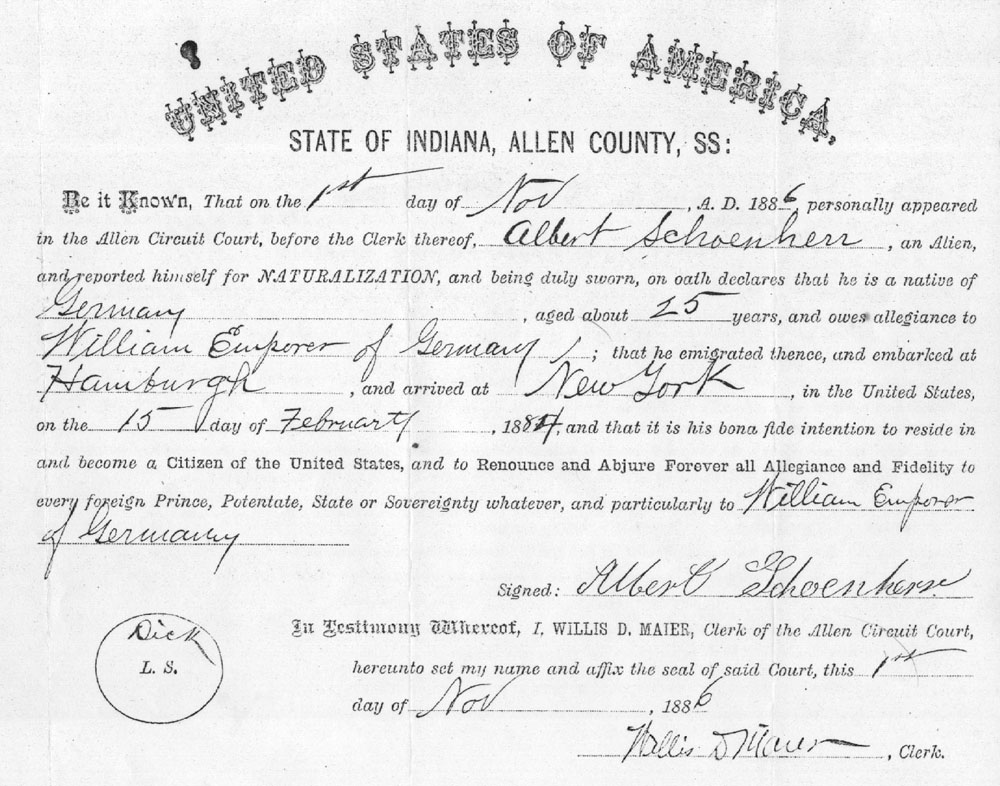 UNITED STATES OF AMERICA,
STATE OF INDIANA, ALLEN COUNTY, SS:
Be it Known, That on the 1st day of Nov, A. D. 1886, personally appeared
in the Allen Circuit Court, before the Clerk thereof, Albert Schoenherr, an Alien,
and reported himself for NATURALIZATION, and being duly sworn, on oath declares that he is a native of
Germany, aged about 25 years, and owes allegiance to
William Emporer of Germany; that he emigrated thence, and embarked at
Hamburgh, and arrived at New York, in the United States,
on the 15 day of February, 1884, and that it is his bona fide intention to reside in
and become a Citizen of the United States, and to Renounce and Abjure Forever all Allegiance and Fidelity to
every foreign Prince, Potentate, State or Sovereignty whatever, and particularly to William Emporer
of Germany
Signed: Albert Schoenherr
In Testimony Whereof, I, WILLIS D. MAIER, Clerk of the Allen Circuit Court,
hereunto set my name and affix the seal of said Court, this 1st
day of Nov, 1886
Dick
L. S.
Willis D Maier, Clerk.